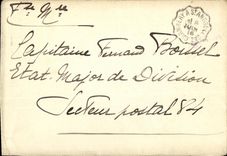 Capitaine Fernand
Etat Major de Division
Secteur postal 84